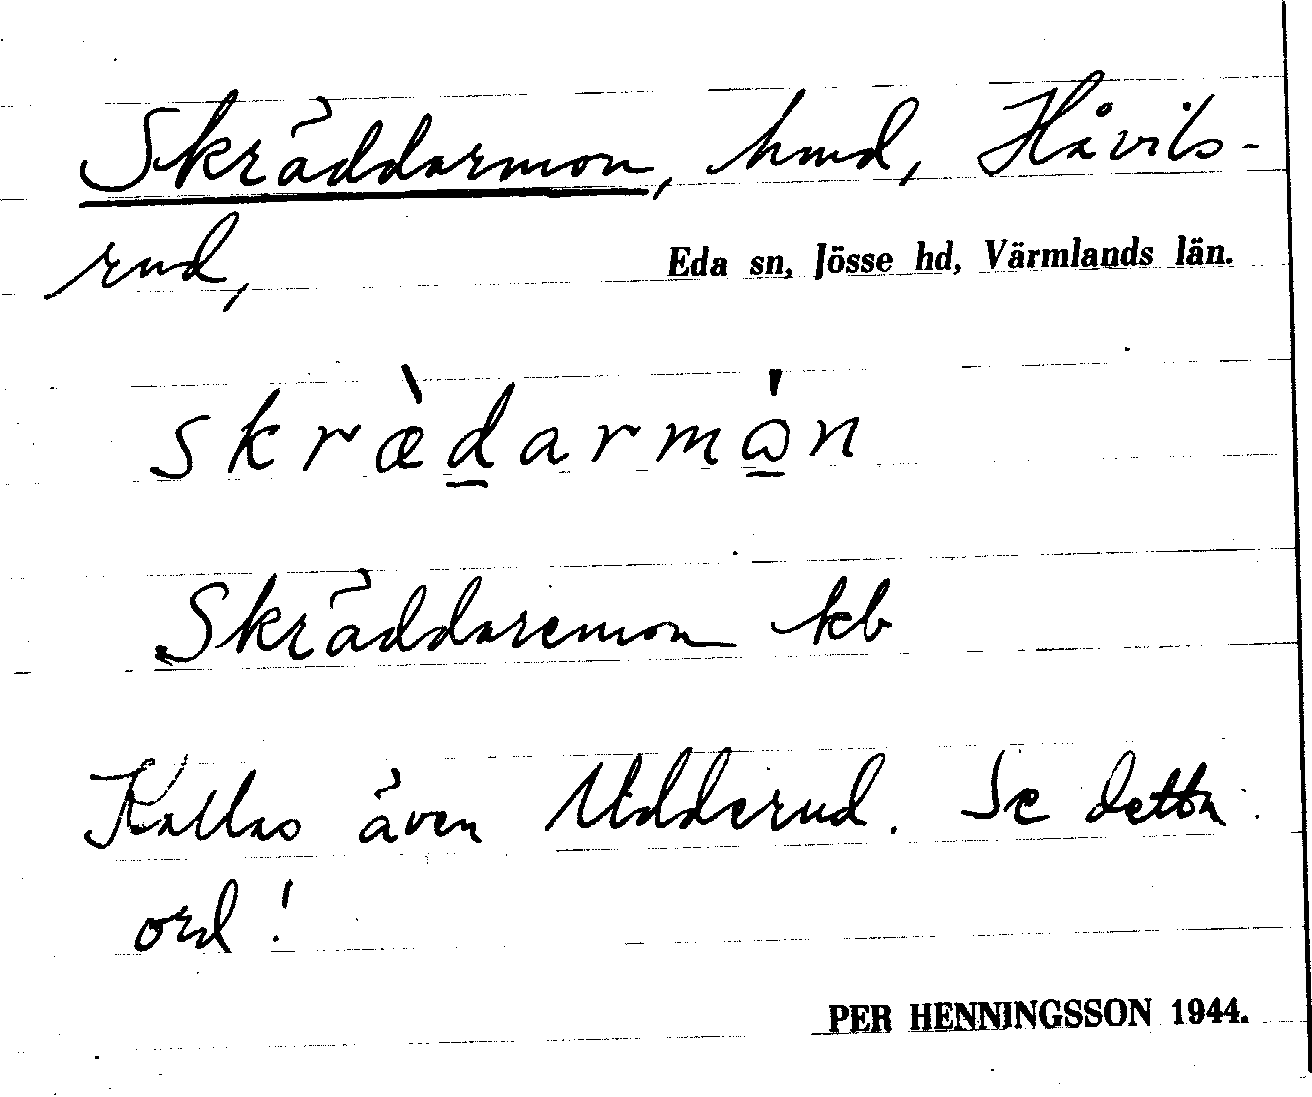 Skräddarmon, hmd, Håvils-
rud,
Eda sn, Jösse hd, Värmlands län.
skræ̀d̲armɷ̲́n
Skräddaremon kb
Kallas även Udderud. Se detta
ord!
PER HENNINGSSON 1944.